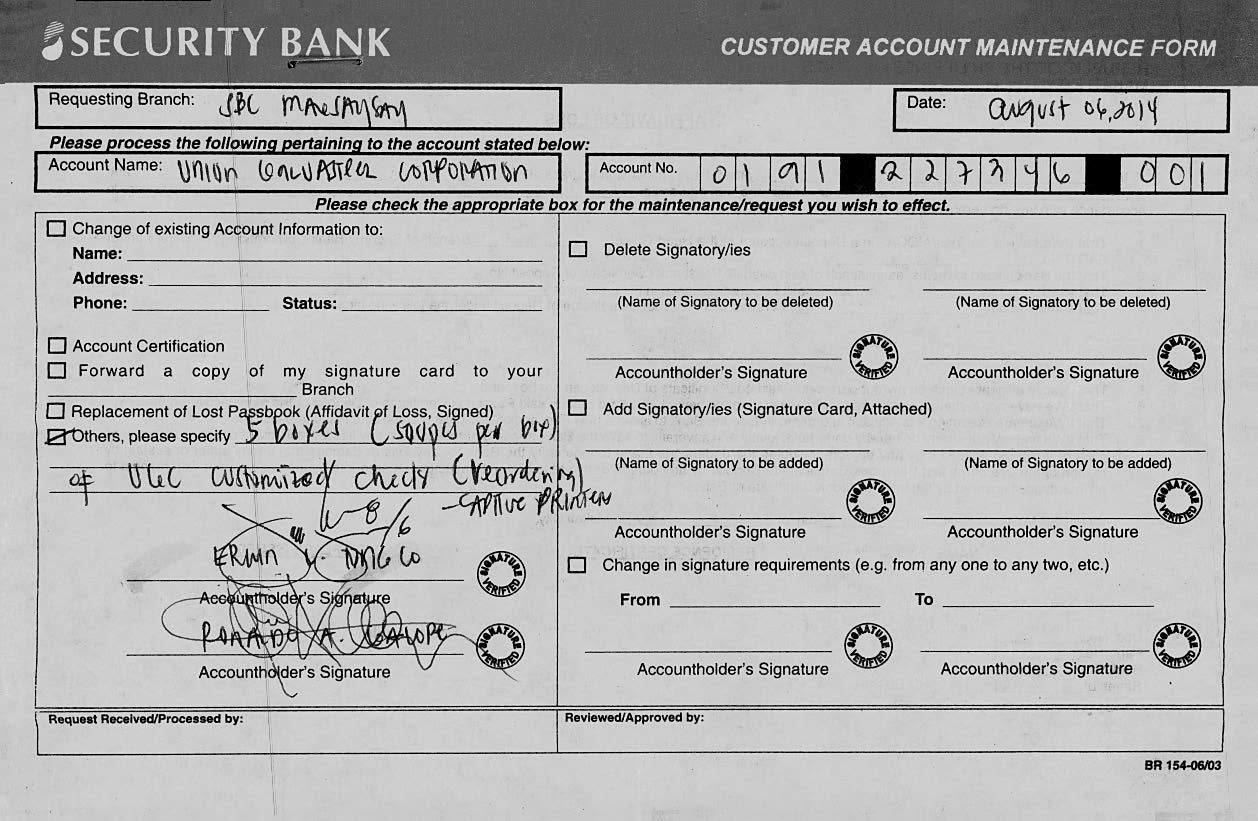 SECURITY BANK
CUSTOMER ACCOUNT MAINTENANCE FORM
Requesting Branch: SBC
Date: August 06, 2014
Please process the following pertaining to the account stated below:
Account Name: Union CORPORATION
Account No. 0191 227346 001
Please check the appropriate box for the maintenance/request you wish to effect.
Change of existing Account Information to:
Name:
Address:
Phone: Status:
Account Certification
Forward a copy of my signature card to your
Branch
Replacement of Lost Passbook (Affidavit of Loss, Signed)
Others, please specify 5 boxes (500pcs per box)
of customized checks (reordering)
- CAPTIVE PRINTER
8/6
ERWIN
SIGNATURE VERIFIED
Accountholder's Signature
RONALDO A.
SIGNATURE VERIFIED
Accountholder's Signature
Delete Signatory/ies
(Name of Signatory to be deleted) (Name of Signatory to be deleted)
SIGNATURE VERIFIED SIGNATURE VERIFIED
Accountholder's Signature Accountholder's Signature
Add Signatory/ies (Signature Card, Attached)
(Name of Signatory to be added) (Name of Signatory to be added)
SIGNATURE VERIFIED SIGNATURE VERIFIED
Accountholder's Signature Accountholder's Signature
Change in signature requirements (e.g. from any one to any two, etc.)
From To
SIGNATURE VERIFIED SIGNATURE VERIFIED
Accountholder's Signature Accountholder's Signature
Request Received/Processed by: Reviewed/Approved by:
BR 154-06/03